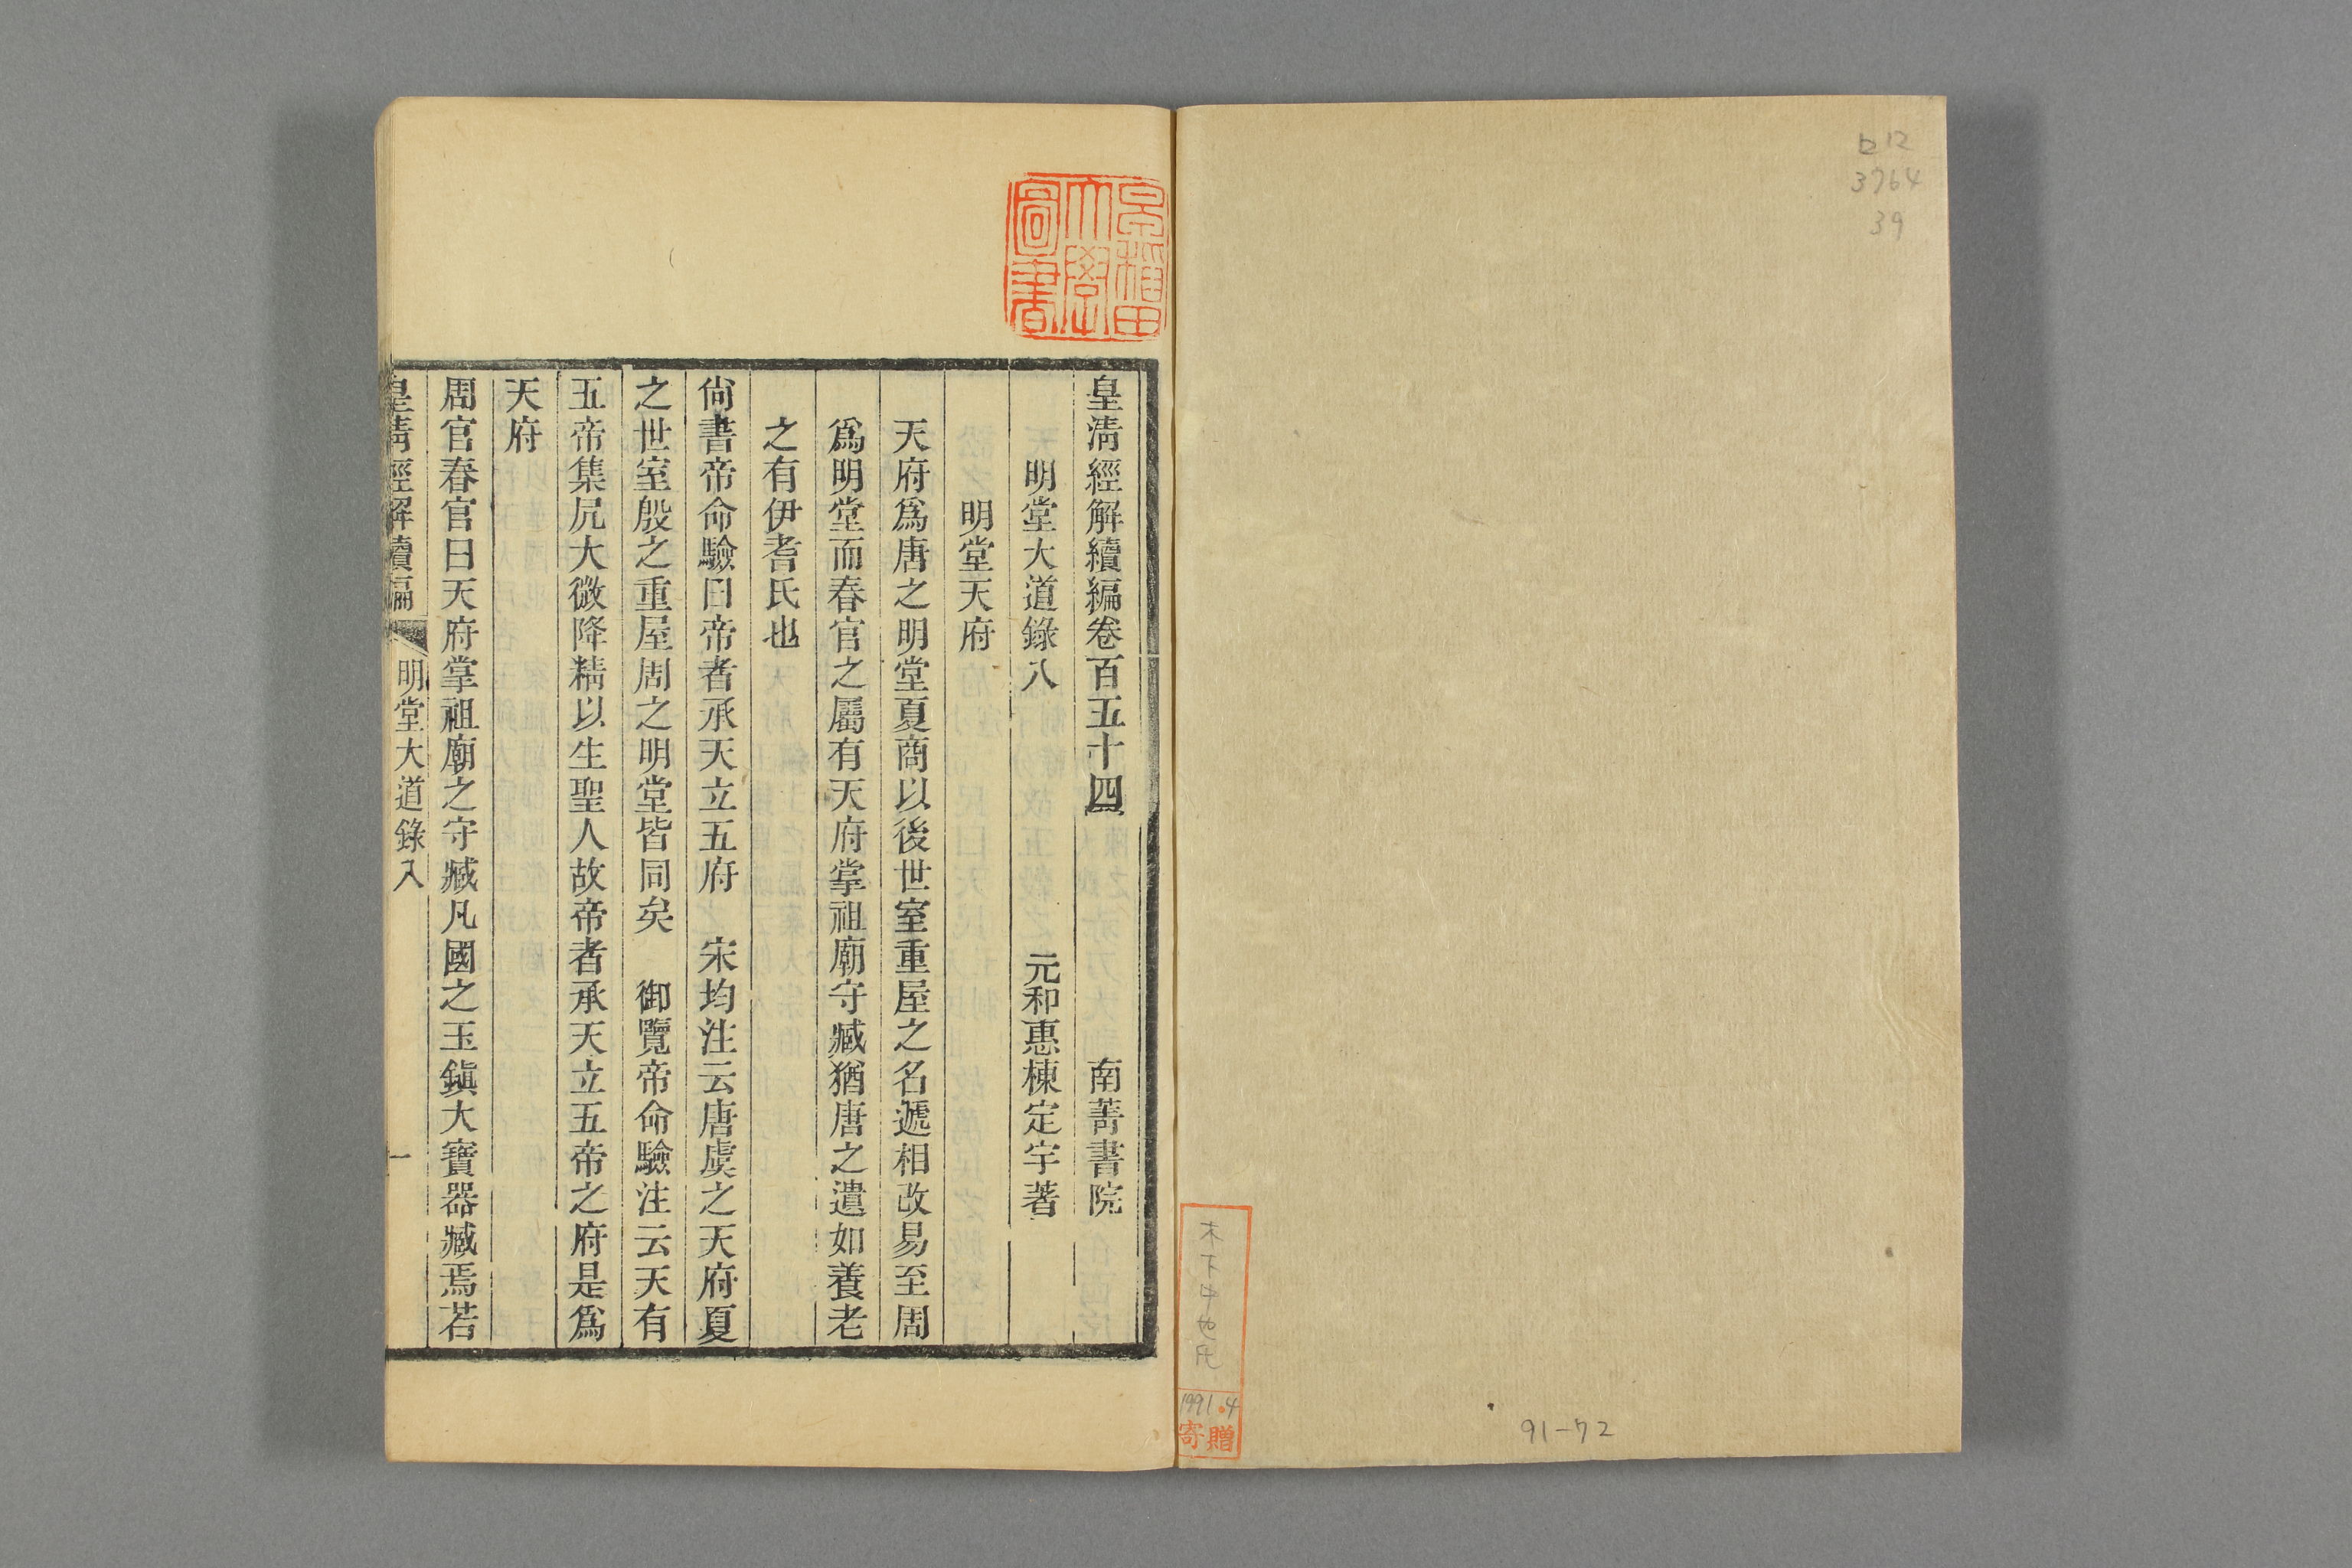 ロ12
3764
39
木下中也氏
1991.4
寄贈
91-72
早稲田大學圖書
皇淸經解續編卷百五十四 南菁書院
明堂大道錄八 元和惠棟定宇著
明堂天府
天府爲唐之明堂夏商以後世室重屋之名遞相改易至周
爲明堂而春官之屬有天府掌祖廟守臧猶唐之遺如養老
之有伊耆氏也
尙書帝命驗曰帝者承天立五府 宋均注云唐虞之天府夏
之世室殷之重屋周之明堂皆同矣 御覽帝命驗注云天有
五帝集凥大微降精以生聖人故帝者承天立五帝之府是爲
天府
周官春官曰天府掌祖廟之守臧凡國之玉鎭大寶器臧焉若
皇淸經解續編 明堂大道錄八 一